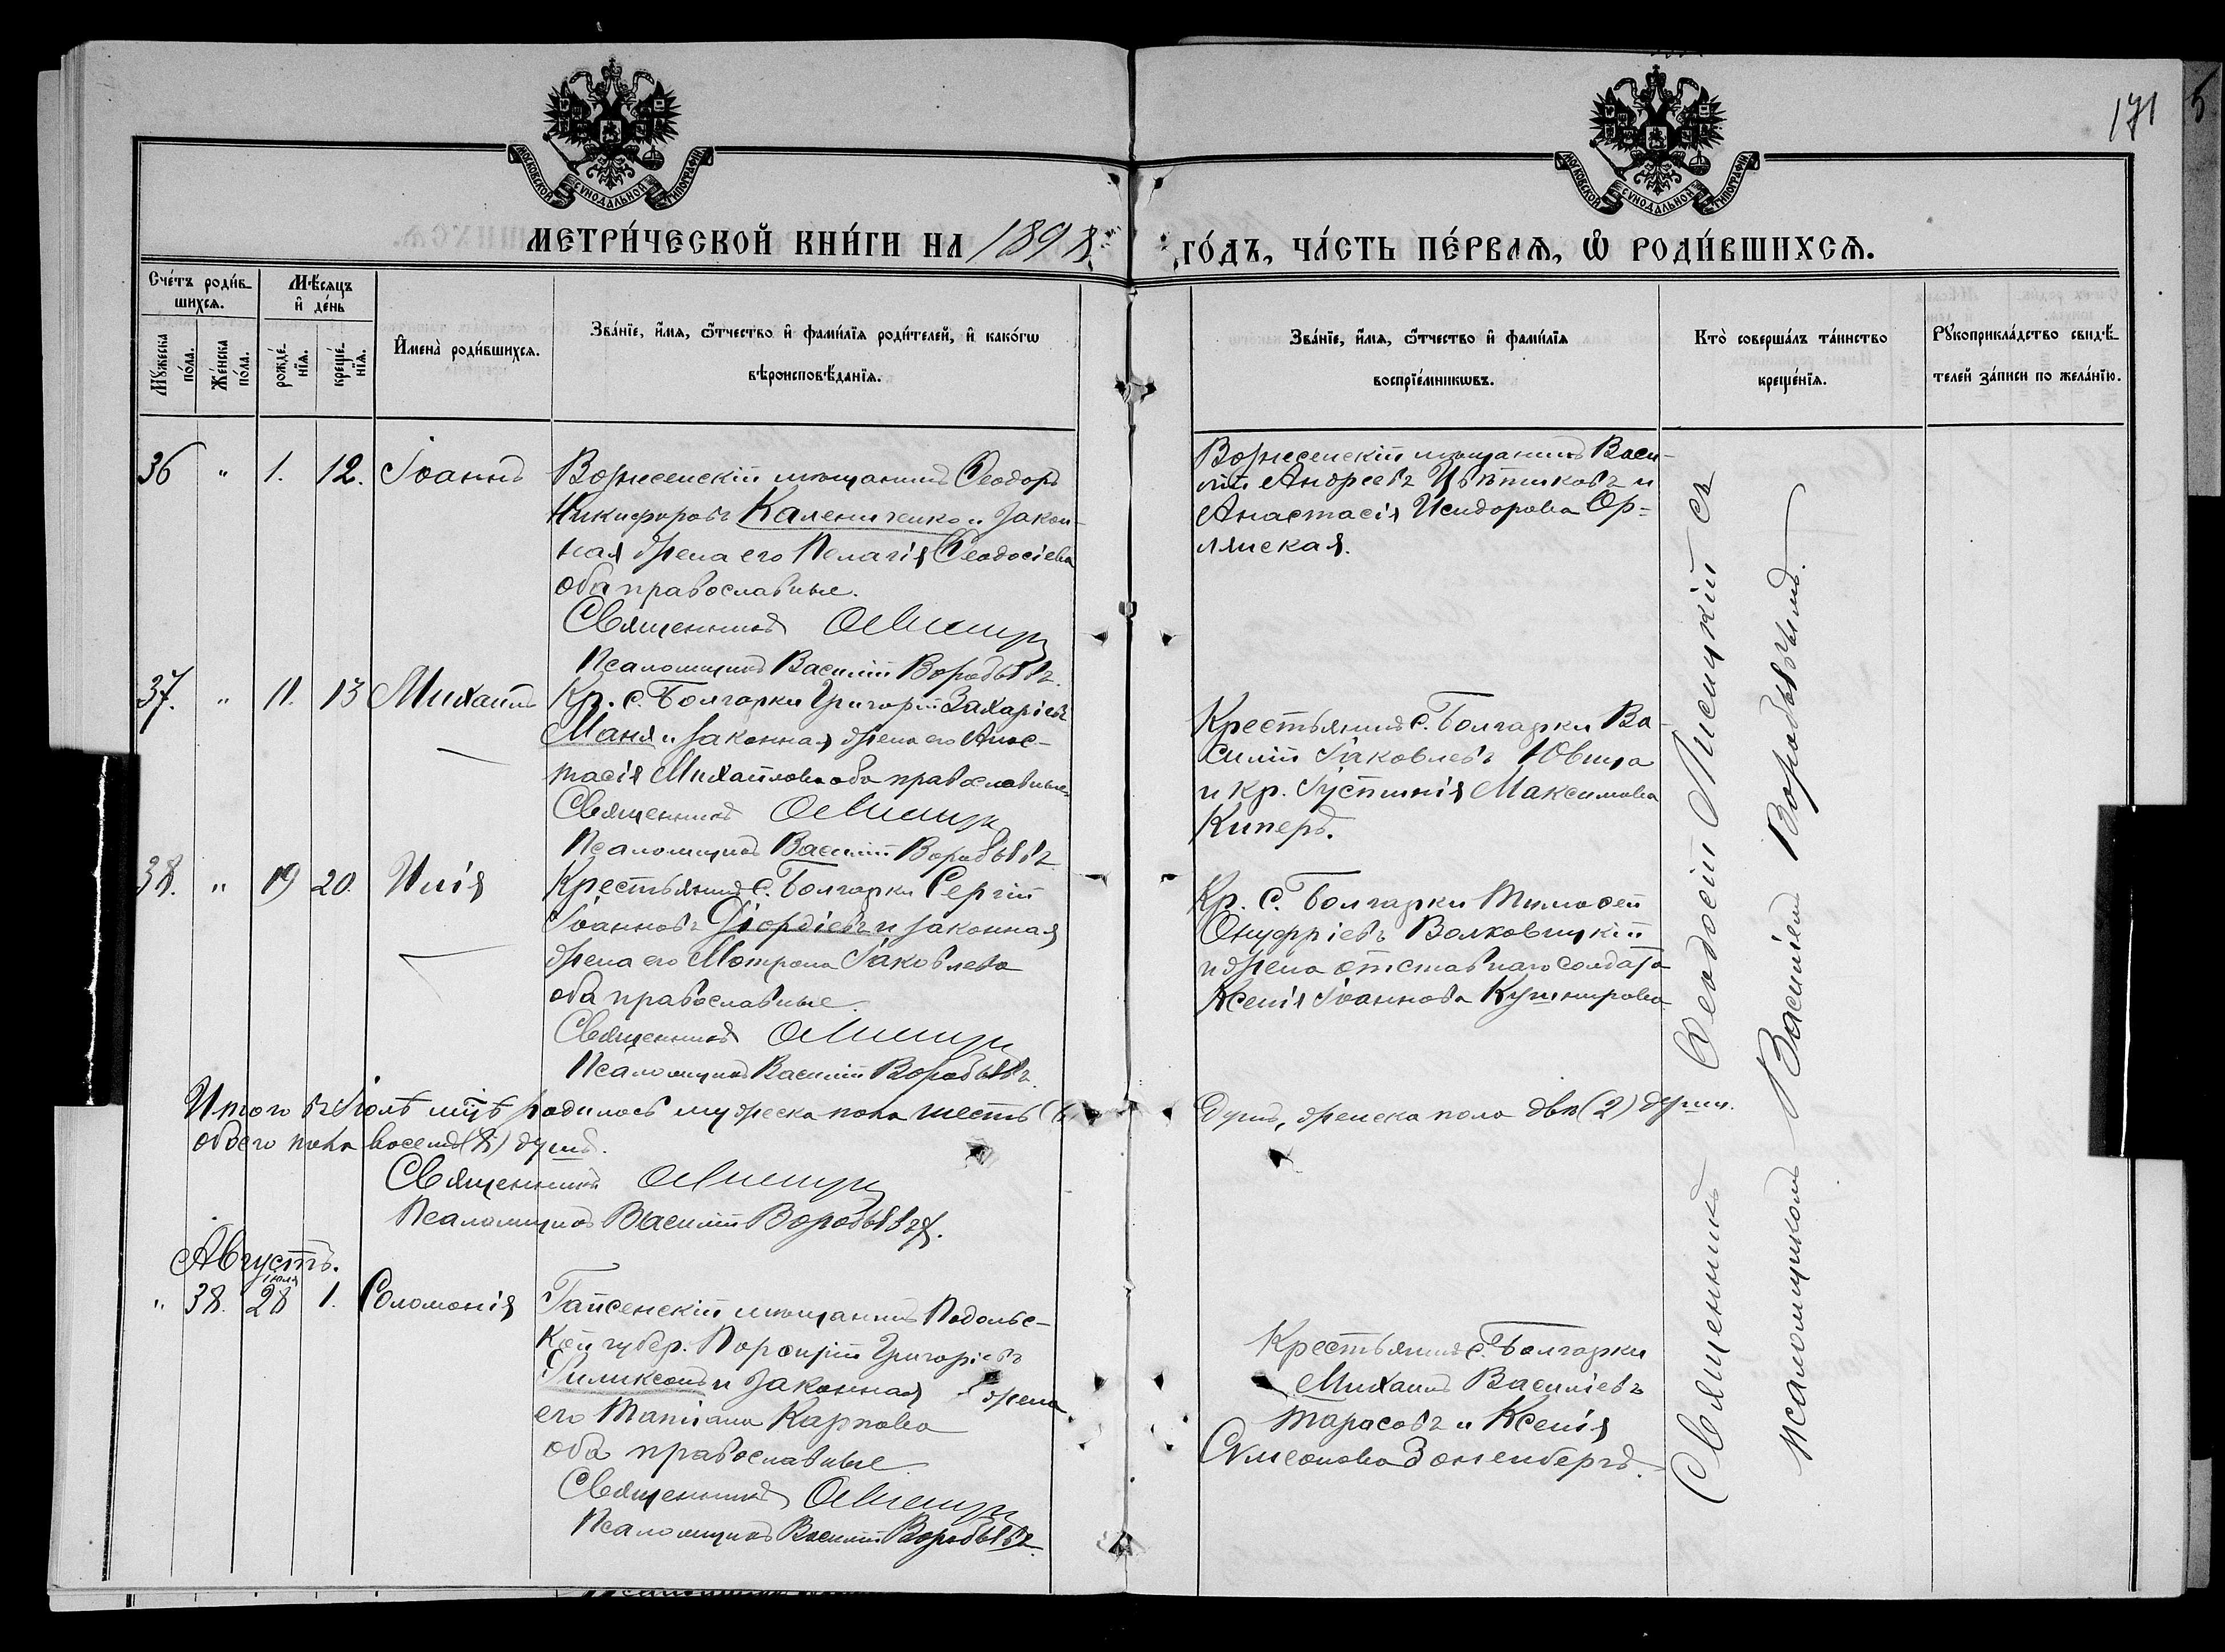 171
5
МОСКОВСКОЙ СѴНОДАЛЬНОЙ ТИПОГРАФІИ
МОСКОВСКОЙ СѴНОДАЛЬНОЙ ТИПОГРАФІИ
МЕТРИ́ЧЕСКОЙ КНИ́ГИ НА 1898 ГО́ДЪ, ЧА́СТЬ ПЕ́РВАѦ, Ѽ РОДИ́ВШИХСѦ.
Сче́тъ роди́в-
шихсѧ.
Мѣ́сѧцъ
и҆ де́нь
Мꙋ́жеска
по́ла.
Же́нска
по́ла.
рожде́-
нїѧ.
креще́-
нїѧ.
И҆мена̀ роди́вшихсѧ.
Зва́нїе, и҆́мѧ, ѻ҆́тчество и҆ фами́лїѧ роди́телей, и҆ како́гѡ
вѣроисповѣ́данїѧ.
Зва́нїе, и҆́мѧ, ѻ҆́тчество и҆ фами́лїѧ
воспрїе́мникѡвъ.
Кто̀ соверша́лъ та́инство
креще́нїѧ.
Рꙋкоприкла́дство свидѣ́-
телей за́писи по жела́нїю.
36 " 1. 12. Іоаннъ
Вознесенскій мѣщанинъ Ѳеодоръ
Никифоровъ Калениченко и закон-
ная жена его Пелагія Ѳеодосіева
оба православные.
Священникъ
Псаломщикъ Василій Воробьевъ
Вознесенскій мѣщанинъ Васи-
лій Андреевъ Цвѣтниковъ и
Анастасія Исидорова Ор-
лянская.
37. " 11. 13 Михаилъ
Кр. с. Болгарки Григорій Захаріевъ
Маня и законная жена его Анас-
тасія Михайлова оба православные
Священникъ
Псаломщикъ Василій Воробьевъ
Крестьянинъ с. Болгарки Ва-
силій Іаковлевъ Ювица
и кр. Іустинія Максимова
Киперъ.
38. " 19 20. Илія
Крестьянинъ с. Болгарки Сергій
Іоанновъ Діордіевъ и законная
жена его Мотрона Іаковлева
оба православные.
Священникъ
Псаломщикъ Василій Воробьевъ.
Кр. с. Болгарки Тимофей
Онуфріевъ Волковицкій
и жена отставнаго солдата
Ксенія Іоаннова Кушнирова
Итого въ Іюлѣ м҃цѣ родилось мужеска пола шесть (6) душъ, женска пола двѣ (2) души.
обоего пола восемь (8) душъ.
Священникъ
Псаломщикъ Василій Воробьевъ.
Августъ.
" 38. іюля 28 1. Соломонія
Гайсенскій мѣщанинъ Подольс-
кой губер. Порфирій Григоріевъ
и законная жена
его Татіана Карпова
оба православные.
Священникъ
Псаломщикъ Василій Воробьевъ.
Крестьянинъ с. Болгарки
Михаилъ Василіевъ
Тарасовъ и Ксенія
Симеонова Зоненбергъ.
Священникъ Ѳеодосій Лисицкій съ
псаломщикомъ Василіемъ Воробьевымъ.